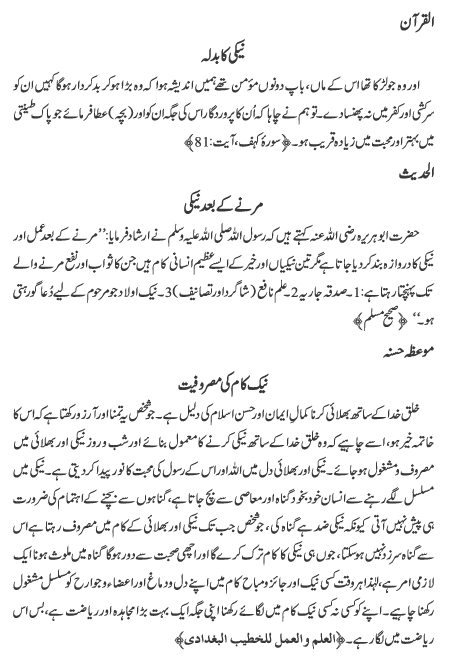 القرآن
نیکی کا بدلہ
اور وہ جو لڑکا تھا اس کے ماں، باپ دونوں مؤمن تھے ہمیں اندیشہ ہوا کہ وہ بڑا ہو کر بدکردار ہوگا کہیں ان کو
سرکشی اور کفر میں نہ پھنسا دے۔ تو ہم نے چاہا کہ اُن کا پروردگار اس کی جگہ ان کو اور (بچہ) عطا فرمائے جو پاک طینتی
میں بہتر اور محبت میں زیادہ قریب ہو۔ ﴿سورۂ کہف، آیت:81﴾
الحدیث
مرنے کے بعد نیکی
حضرت ابو ہریرہ رضی اللہ عنہ کہتے ہیں کہ رسول اللہ صلی اللہ علیہ وسلم نے ارشاد فرمایا: ’’مرنے کے بعد عمل اور
نیکی کا دروازہ بند کر دیا جاتا ہے مگر تین نیکیاں اور خیر کے ایسے عظیم انسانی کام ہیں جن کا ثواب اور نفع مرنے والے
تک پہنچتا رہتا ہے: 1۔ صدقہ جاریہ 2۔ علم نافع (شاگرد اور تصانیف) 3۔ نیک اولاد جو مرحوم کے لیے دُعا گو رہتی
ہو۔‘‘ ﴿صحیح مسلم﴾
موعظہ حسنہ
نیک کام کی مصروفیت
خلق خدا کے ساتھ بھلائی کرنا کمالِ ایمان اور حسن اسلام کی دلیل ہے۔ جو شخص یہ تمنا اور آرزو رکھتا ہے کہ اس کا
خاتمہ خیر ہو، اسے چاہیے کہ وہ خلق خدا کے ساتھ نیکی کرنے کا معمول بنائے اور شب و روز نیکی اور بھلائی میں
مصروف و مشغول ہو جائے۔ نیکی اور بھلائی دل میں اللہ اور اس کے رسول کی محبت کا نور پیدا کر دیتی ہے۔ نیکی میں
مسلسل لگے رہنے سے انسان خود بخود گناہ اور معاصی سے بچ جاتا ہے، گناہوں سے بچنے کے اہتمام کی ضرورت
ہی پیش نہیں آتی کیونکہ نیکی ضد ہے گناہ کی، جو شخص جب تک نیکی اور بھلائی کے کام میں مصروف رہتا ہے اس
سے گناہ سرزد نہیں ہو سکتا، جوں ہی نیکی کا کام ترک کرے گا اور اچھی صحبت سے دور ہوگا گناہ میں ملوث ہونا ایک
لازمی امر ہے، لہٰذا ہر وقت کسی نیک اور جائز و مباح کام میں اپنے دل و دماغ اور اعضاء و جوارح کو مسلسل مشغول
رکھنا چاہیے۔ اپنے کو کسی نہ کسی نیک کام میں لگائے رکھنا اپنی جگہ ایک بہت بڑا مجاہدہ اور ریاضت ہے، بس اس
ریاضت میں لگا رہے۔ ﴿العلم والعمل للخطیب البغدادی﴾